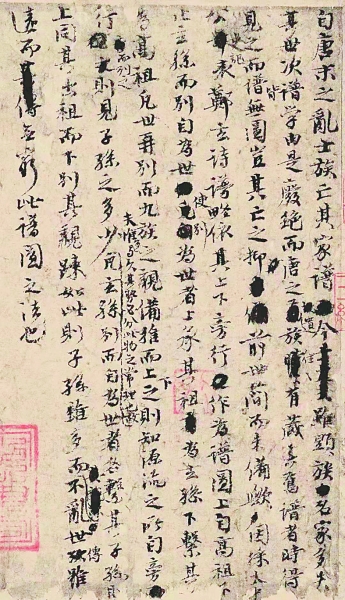 自唐末之亂士族亡其家譜今雖顯族名家多失
其世次譜學由是廢絕而唐之遺族往往有藏其舊譜者時得
見之而譜皆無圖豈其亡之抑前世簡而未備歟因採太史
表鄭玄詩譜略依其上下旁行作為譜圖上自高祖下
止玄孫而別自為世使別為世者上承其祖為玄孫下繫其
孫為高祖凡世再別而九族之親備推而上下之則知源流之所自旁
行而列之則見子孫之多少夫惟多與久其勢必分此物之常理也凡玄孫別而自為世者各繫其子孫則
上同其出祖而下別其親疎如此則子孫雖多而不亂世傳雖
遠而無窮此譜圖之法也